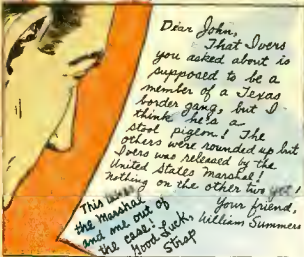 Dear John,
That Ivers
you asked about is
supposed to be a
member of a Texas
border gang, but I
think he's an
stool pigeon! The
others were rounded up but
Ivers was released by the
United States Marshal!
Nothing on the other two yet!
Your friend,
William Summers
This
the Marshal
and me out of
the case!
Good Luck,
Strap